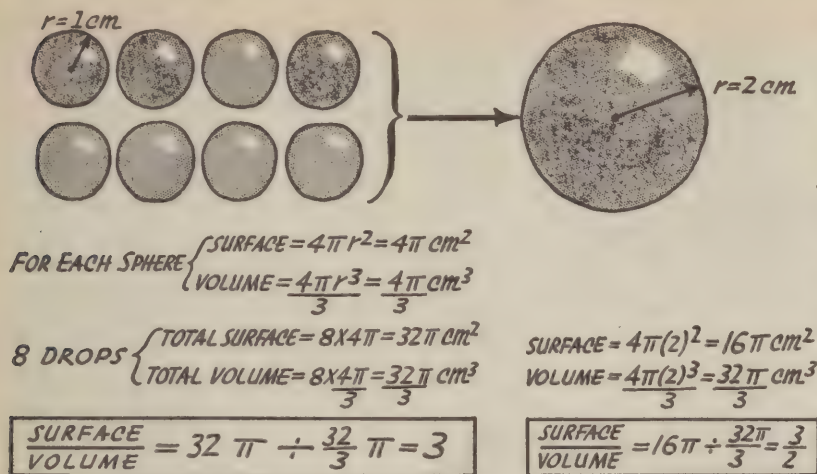 r=1cm
r=2cm
FOR EACH SPHERE { SURFACE=4πr²=4π cm²
VOLUME=4πr³/3=4π/3 cm³
8 DROPS { TOTAL SURFACE=8X4π=32π cm²
TOTAL VOLUME=8X4π/3=32π/3 cm³
SURFACE/VOLUME = 32 π ÷ 32/3 π = 3
SURFACE=4π(2)²=16π cm²
VOLUME=4π(2)³/3=32π/3 cm³
SURFACE/VOLUME =16π÷32π/3=3/2